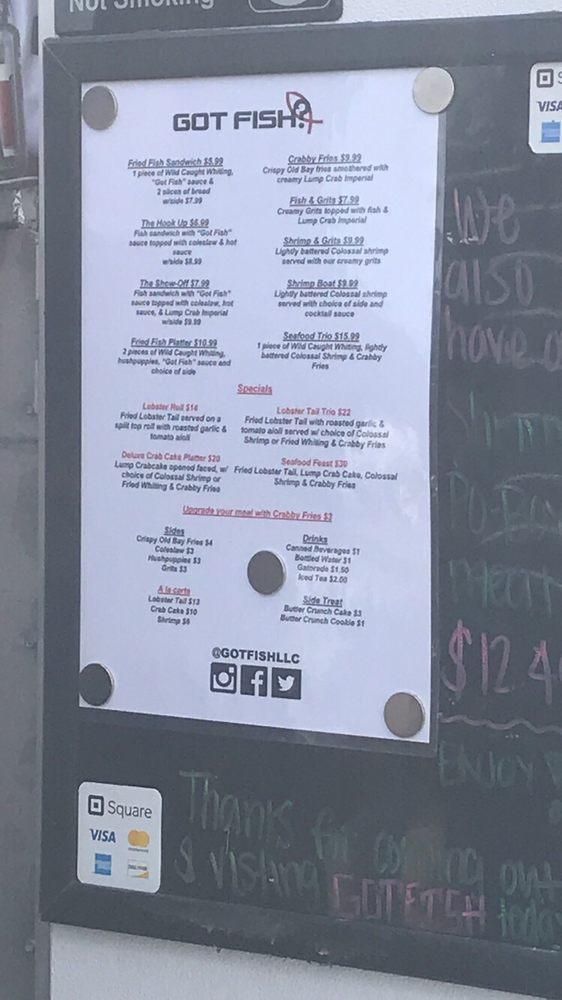 Not Smoking
GOT FISH?
Fried Fish Sandwich $5.99
1 piece of Wild Caught Whiting,
"Got Fish" sauce &
2 slices of bread
w/side $7.99
The Hook Up $6.99
Fish sandwich with "Got Fish"
sauce topped with coleslaw & hot
sauce
w/side $8.99
The Show-Off $7.99
Fish sandwich with "Got Fish"
sauce topped with coleslaw, hot
sauce, & Lump Crab Imperial
w/side $9.99
Fried Fish Platter $10.99
2 pieces of Wild Caught Whiting,
hushpuppies, "Got Fish" sauce and
choice of side
Crabby Fries $9.99
Crispy Old Bay fries smothered with
creamy Lump Crab Imperial
Fish & Grits $7.99
Creamy Grits topped with fish &
Lump Crab Imperial
Shrimp & Grits $9.99
Lightly battered Colossal shrimp
served with our creamy grits
Shrimp Boat $9.99
Lightly battered Colossal shrimp
served with choice of side and
cocktail sauce
Seafood Trio $15.99
1 piece of Wild Caught Whiting, lightly
battered Colossal Shrimp & Crabby
Fries
Specials
Lobster Roll $14
Fried Lobster Tail served on a
split top roll with roasted garlic &
tomato aioli
Lobster Tail Trio $22
Fried Lobster Tail with roasted garlic &
tomato aioli served w/ choice of Colossal
Shrimp or Fried Whiting & Crabby Fries
Deluxe Crab Cake Platter $20
Lump Crabcake opened faced, w/
choice of Colossal Shrimp or
Fried Whiting & Crabby Fries
Seafood Feast $30
Fried Lobster Tail, Lump Crab Cake, Colossal
Shrimp & Crabby Fries
Upgrade your meal with Crabby Fries $3
Sides
Crispy Old Bay Fries $4
Coleslaw $3
Hushpuppies $3
Grits $3
A la carte
Lobster Tail $13
Crab Cake $10
Shrimp $6
Drinks
Canned Beverages $1
Bottled Water $1
Gatorade $1.50
Iced Tea $2.00
Side Treat
Butter Crunch Cake $3
Butter Crunch Cookie $1
@GOTFISHLLC
VISA
We
also
have
$12.4
ENJOY
Square
VISA
Thanks for coming out
& visiting GOT FISH today